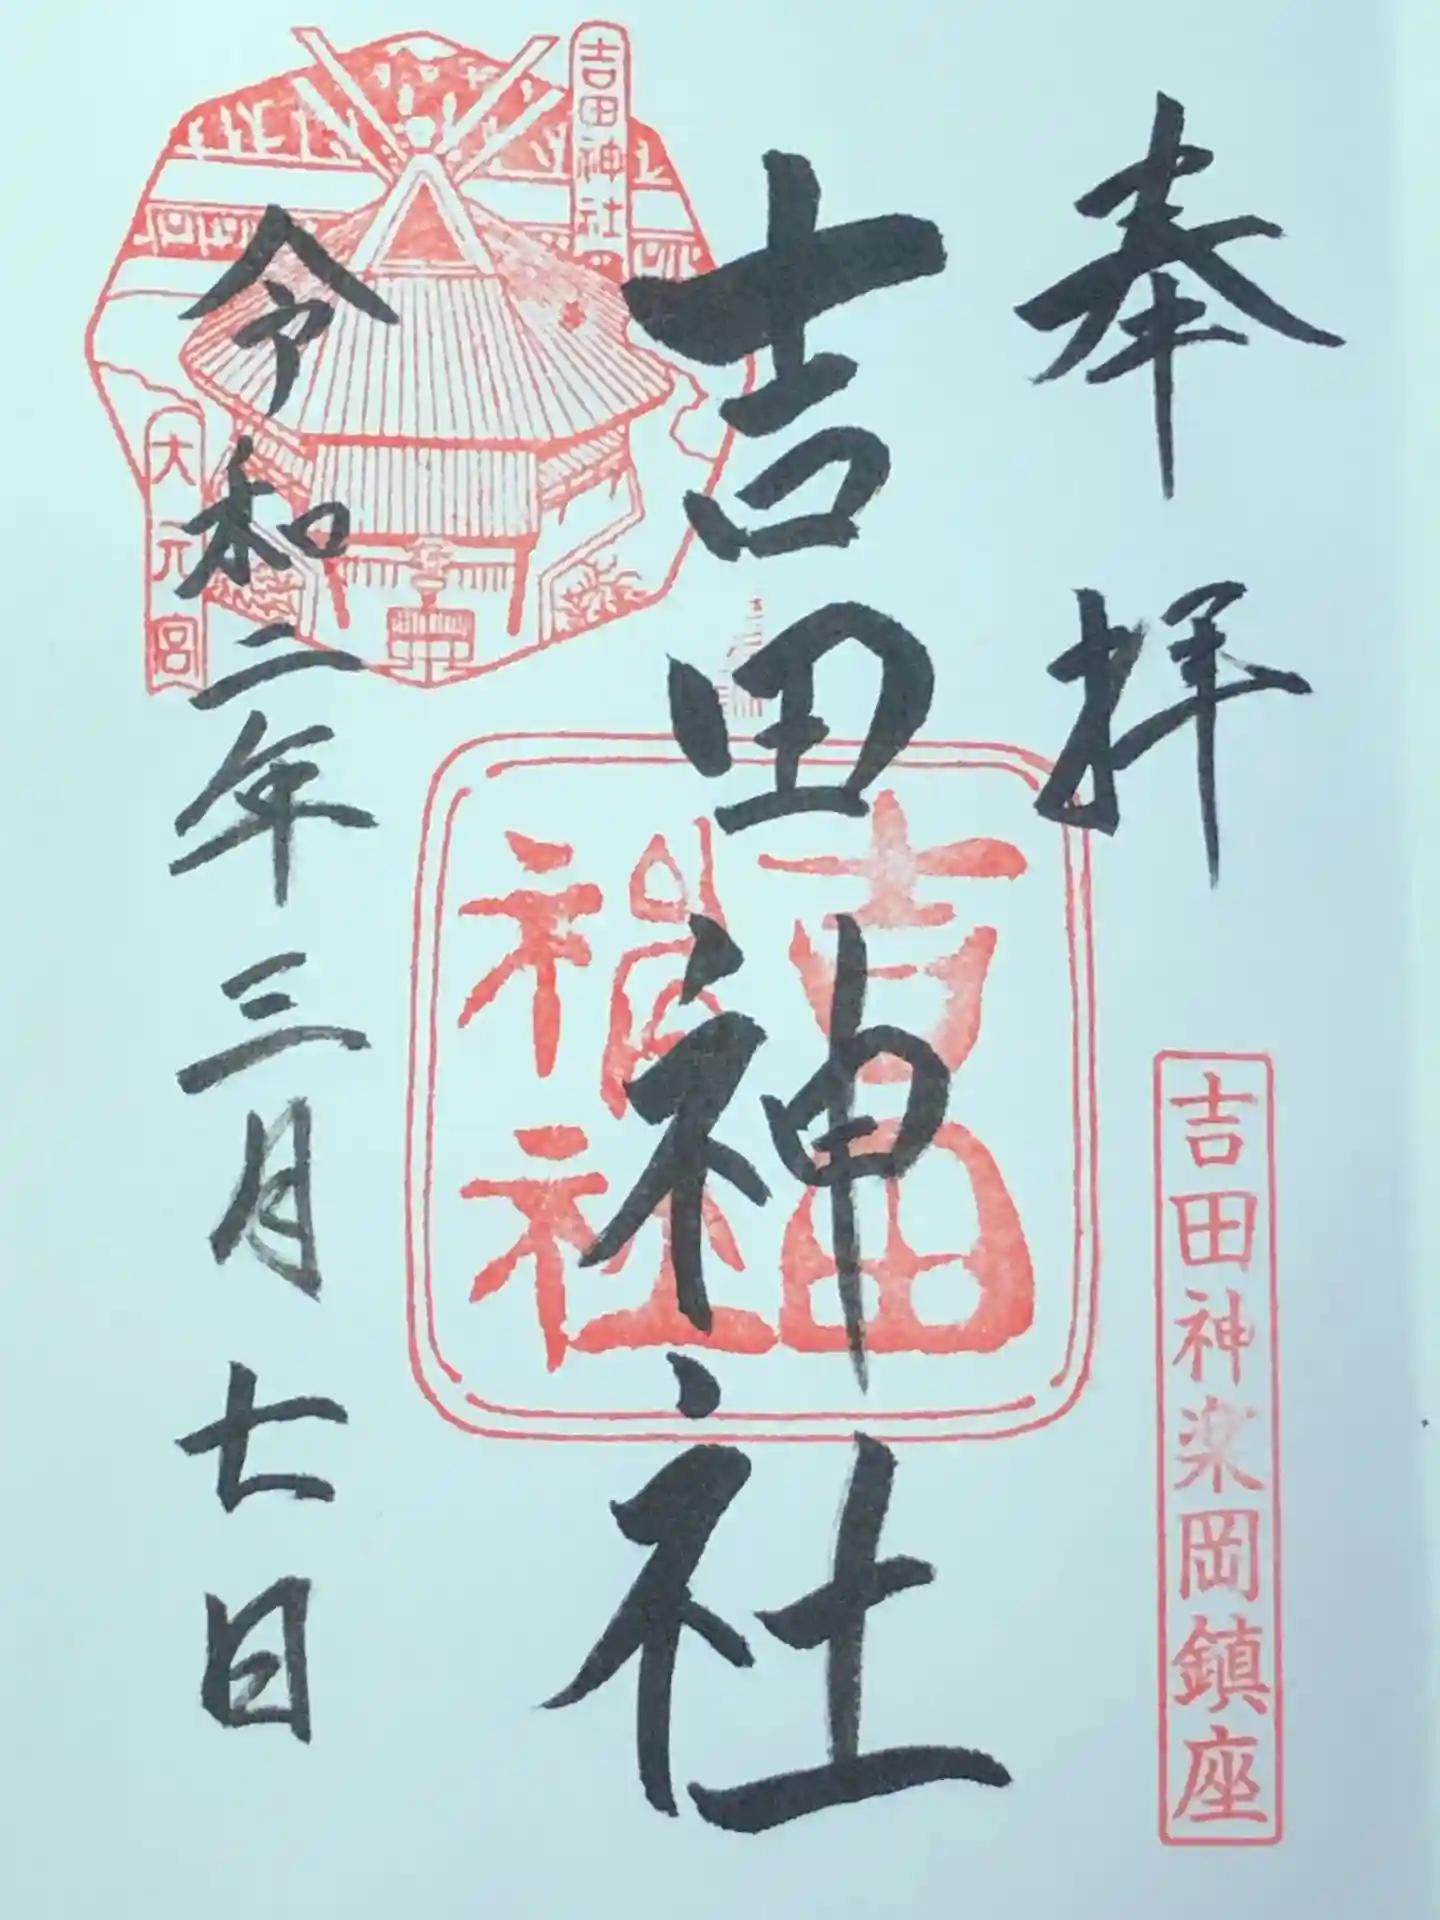 奉拝
吉田神楽岡鎮座
吉田神社
吉田神社
吉田神社
大元宮
令和二年三月七日